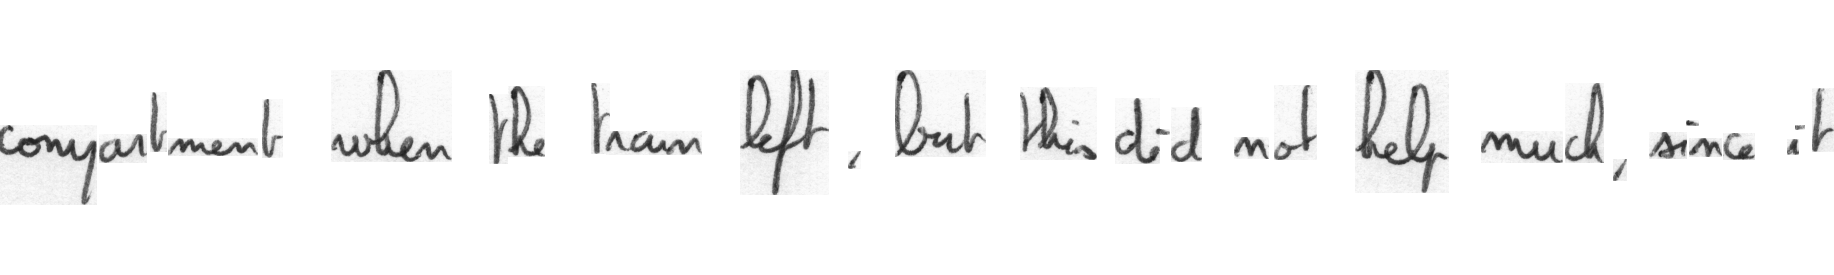 compartment when the train left, but this did not help much, since it